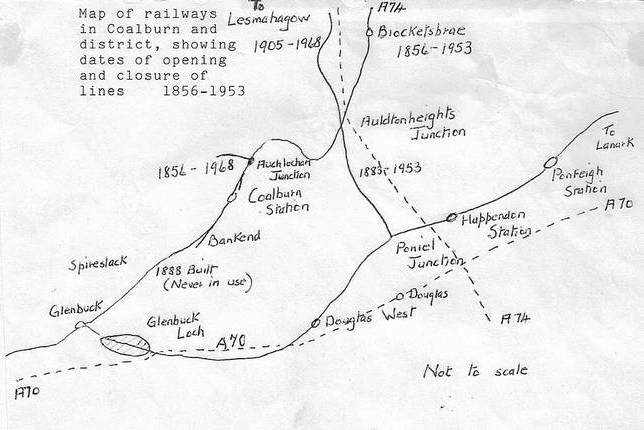 Map of railways
in Coalburn and
district, showing
dates of opening
and closure of
lines 1856-1953
To
Lesmahagow
1905-1968
A74
Brocketsbrae
1856-1953
Auldtonheights
Junction
To
Lanark
1856-1968
Auchlochan
Junction
1883-1953
Ponfeigh
Station
Coalburn
Station
A70
Happendon
Station
Bankend
Poniel
Junction
Spireslack
1888 Built
(Never in use)
Glenbuck
Glenbuck
Loch
Douglas
Douglas West
A74
A70
Not to scale
A70